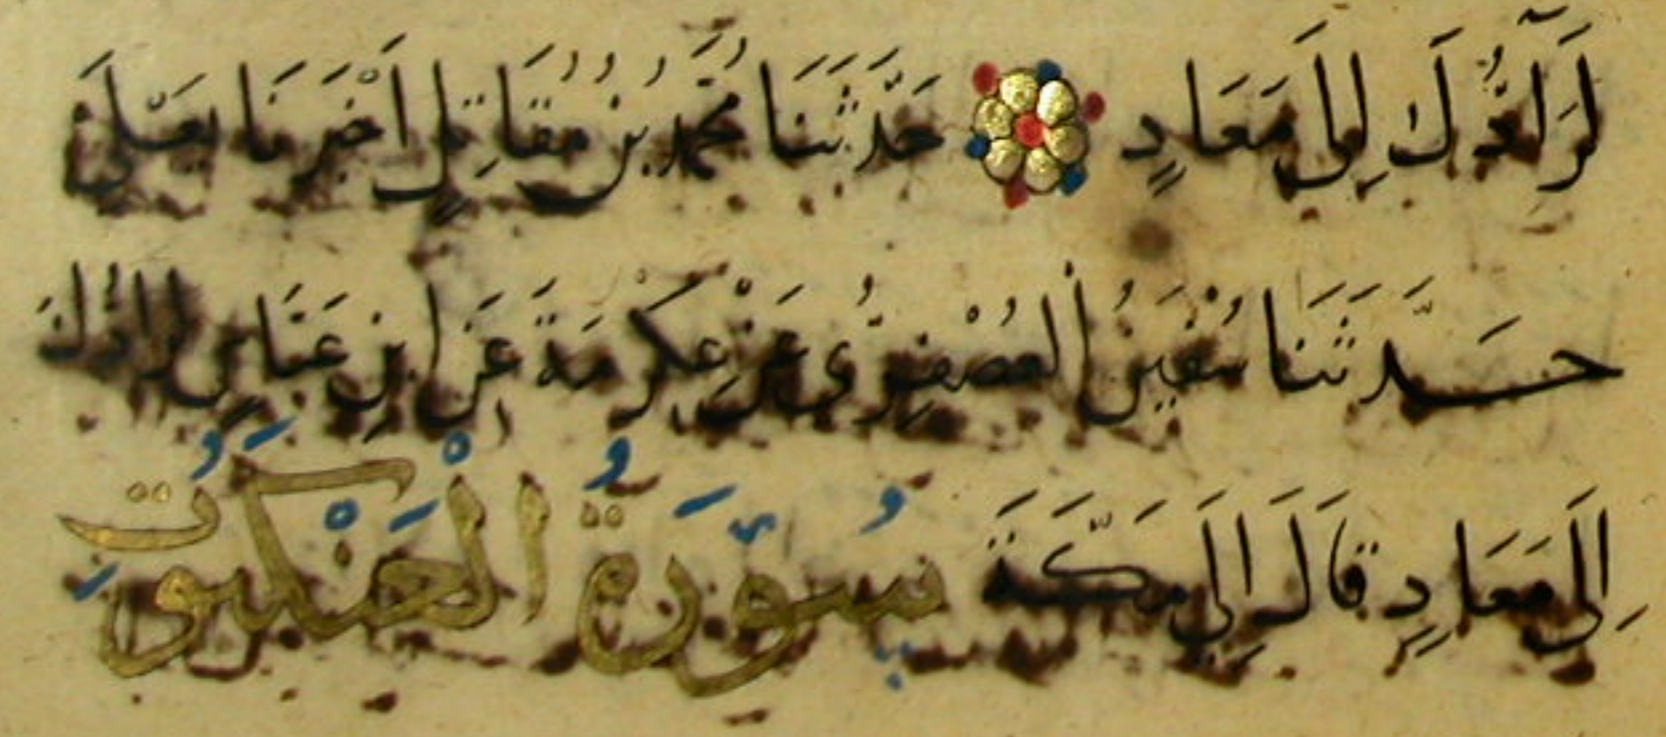 لَرَآدُّكَ إِلَى مَعَادٍ حَدَّثَنَا مُحَمَّدُ بْنُ مُقَاتِلٍ أَخْبَرَنَا يَعْلَى
حَدَّثَنَا سُفْيَنُ الْعُصْفُرِيُّ عَنْ عِكْرِمَةَ عَنِ ابْنِ عَبَّاسٍ لَرَادُّكَ
إِلَى مَعَادٍ قَالَ إِلَى مَكَّةَ سُورَةُ الْعَنْكَبُوتِ